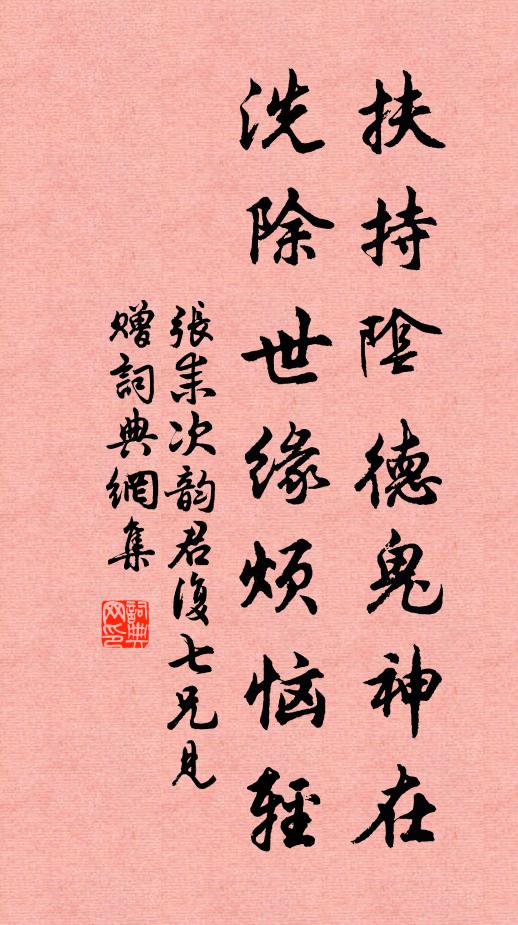 扶持陰德鬼神在
洗除世緣煩恼輕
張耒次韵君復七兄見
赠詞典網集
詞典网印